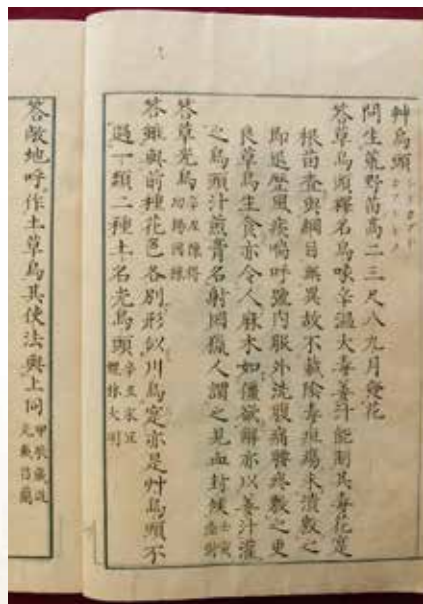 艸烏頭
シラカブト
カブトギク
問生荒野苗高二三尺八九月發花
答草烏頭釋名烏喙辛溫大毒姜汁能制其毒花寔
根苗查與綱目無異故不載陰毒疽瘍未潰敷之
即退歷風痰喘呼號內服外洗腹痛腰疼敷之更
良草烏生食亦令人麻木如僵欲解亦以姜汁灌
之烏頭汁煎膏名射罔獵人謂之見血封候
答草光烏
答雖與前種花色各別形似川烏寔亦是艸烏頭不
過一類二種土名光烏頭
答敝地呼作土草烏其使法與上同